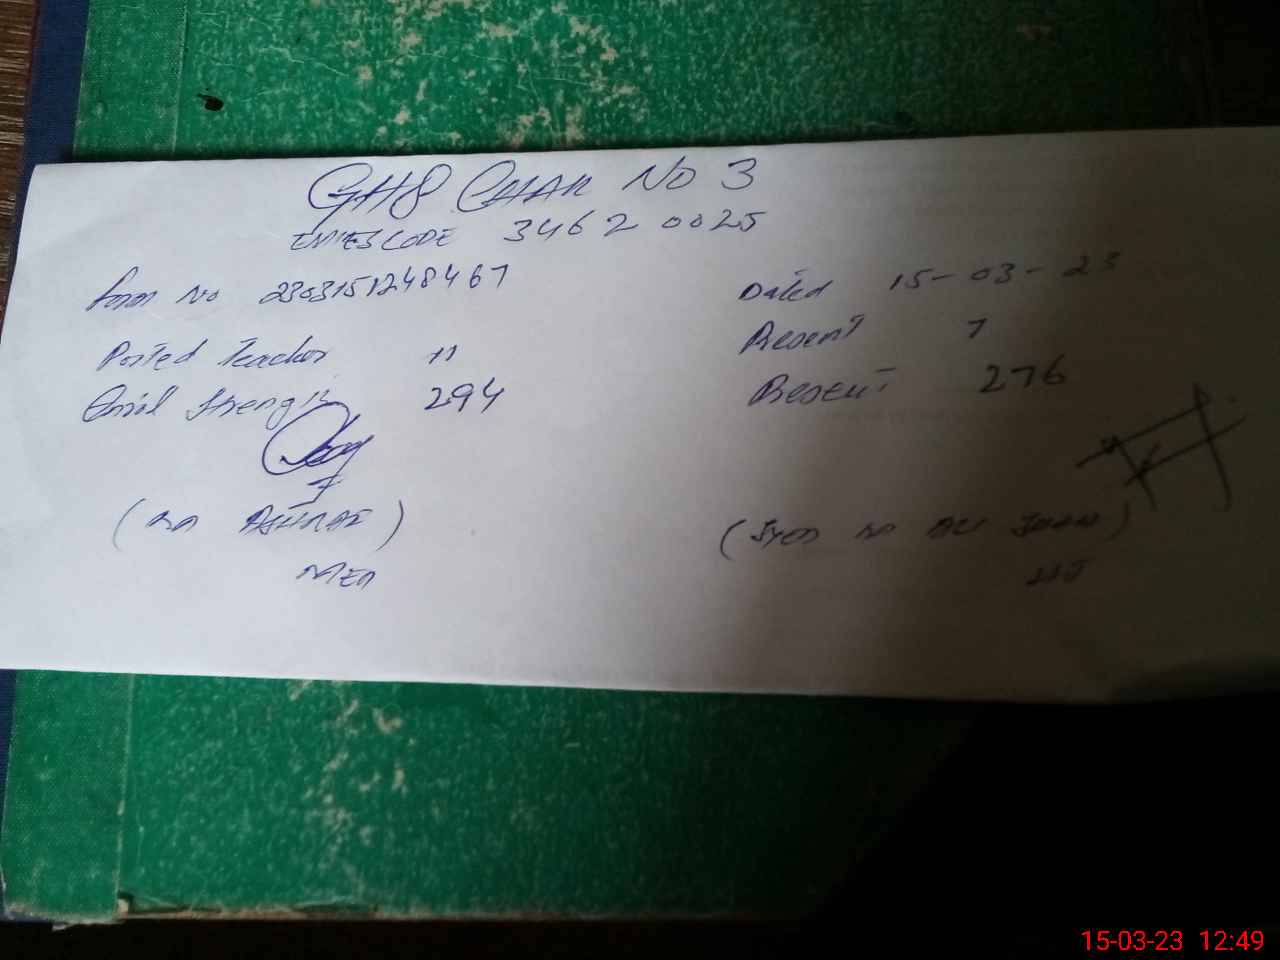 GHS CHAK NO 3
EMIES CODE 34620025
Form No 2303151248467 Dated 15-03-23
Posted teacher 11 Present 7
Enrol strength 294 Present 276
(M ASHRAF)
MEA
15-03-23 12:49